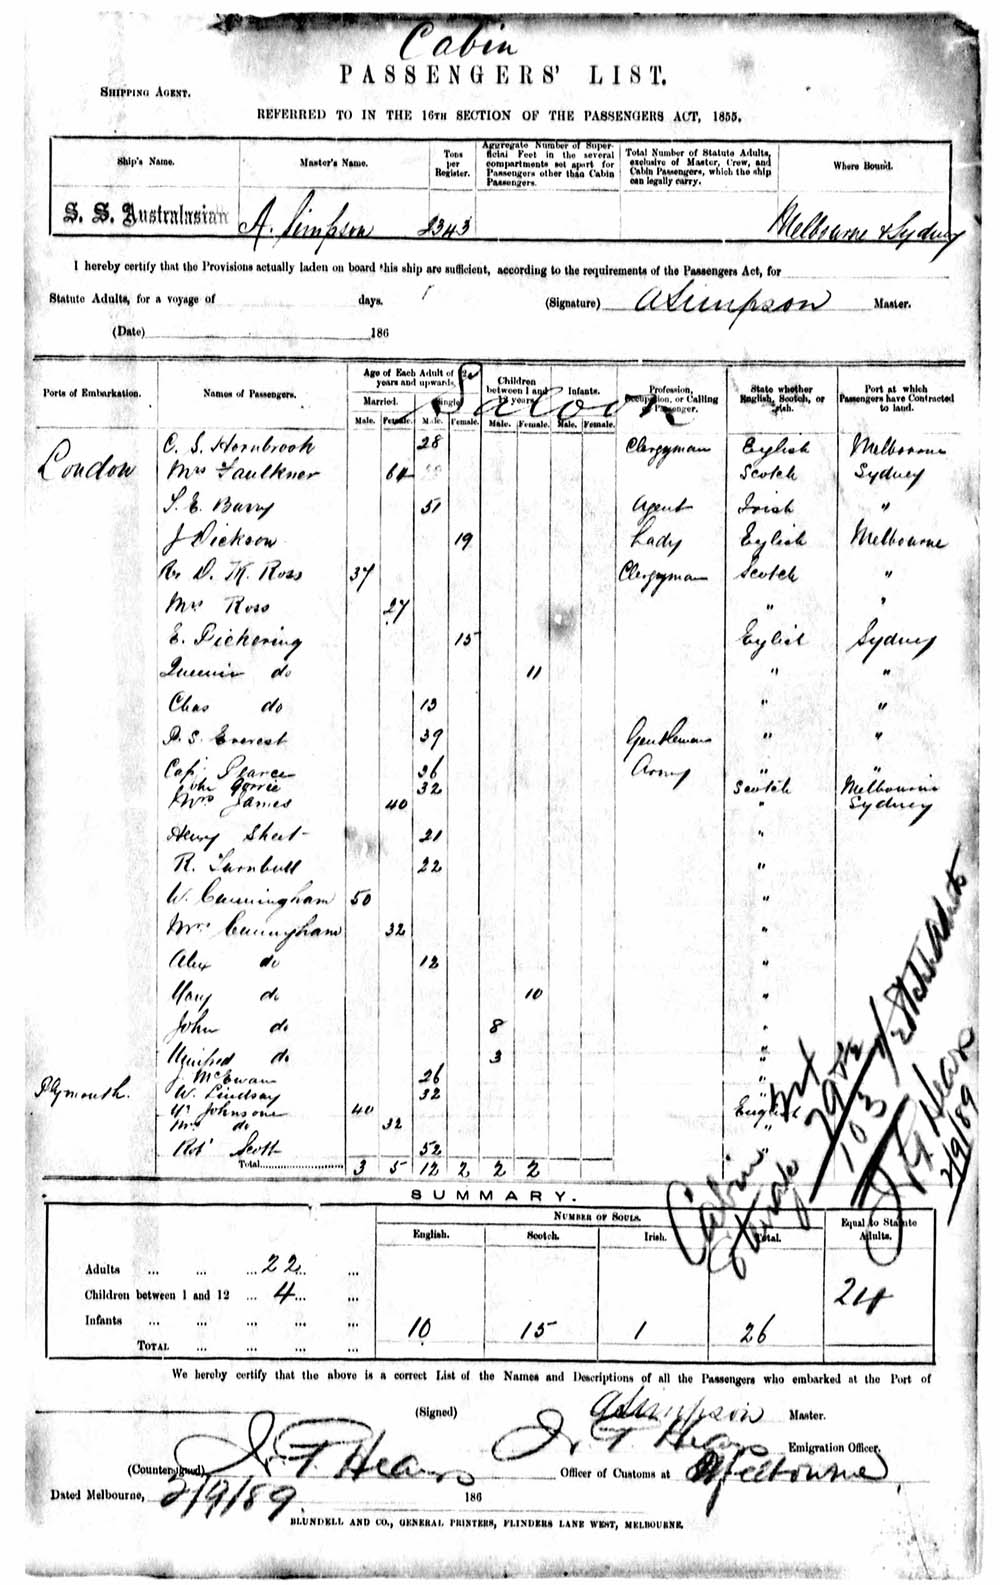 Cabin
PASSENGERS' LIST.
SHIPPING AGENT.
REFERRED TO IN THE 16TH SECTION OF THE PASSENGERS ACT, 1855.
Ship's Name. Master's Name. Tons per Register. Aggregate Number of Superficial Feet in the several compartments set apart for Passengers other than Cabin Passengers. Total Number of Statute Adults, exclusive of Master, Crew, and Cabin Passengers, which the ship can legally carry. Where Bound.
S. S. Australasian A. Simpson 2343 Melbourne & Sydney
I hereby certify that the Provisions actually laden on board this ship are sufficient, according to the requirements of the Passengers Act, for
Statute Adults, for a voyage of days. (Signature) A Simpson Master.
(Date) 186
Saloon
Ports of Embarkation. Names of Passengers. Age of Each Adult of 12 years and upwards. Children between 1 and 12 years. Infants. Profession, Occupation, or Calling of Passenger. State whether English, Scotch, or Irish. Port at which Passengers have Contracted to land.
Married. Single.
Male. Female. Male. Female. Male. Female. Male. Female.
London C. S. Hornbrook 28 Clergyman English Melbourne
Mrs Faulkner 64 Scotch Sydney
S. E. Barry 51 Agent Irish "
J Dickson 19 Lady English Melbourne
Rev D. K. Ross 37 Clergyman Scotch "
Mrs Ross 27 " "
E. Pickering 15 English Sydney
do 11 " "
Chas do 13 " "
P. S. Everest 39 Gentleman " "
Capt Pearce 36 Army " "
John Gorrie 32 Scotch Melbourne
Mrs James 40 " Sydney
Henry 21 "
R. Turnbull 22 "
W. Cunningham 50 "
Mrs Cunningham 32 "
Alex do 12 "
Mary do 10 "
John do 8 "
Winifred do 3 "
J. McEwan 26 "
Plymouth. W. Lindsay 32 "
Johnsone 40 English
Mrs do 32 "
Robt Scott 52 "
Total 3 5 12 2 2 2
Cabin 29
103
J F Hears
2/9/89
SUMMARY.
NUMBER OF SOULS. Equal to Statute Adults.
English. Scotch. Irish. Total.
Adults ... ... ... 22 ... ...
Children between 1 and 12 ... 4 ... ... 24
Infants ... ... ... ... ... 10 15 1 26
TOTAL ... ... ... ...
We hereby certify that the above is a correct List of the Names and Descriptions of all the Passengers who embarked at the Port of
(Signed) A Simpson Master.
J. F. Hears Emigration Officer.
(Countersigned) J. F. Hears Officer of Customs at Melbourne
Dated Melbourne, 2/9/89 186
BLUNDELL AND CO., GENERAL PRINTERS, FLINDERS LANE WEST, MELBOURNE.